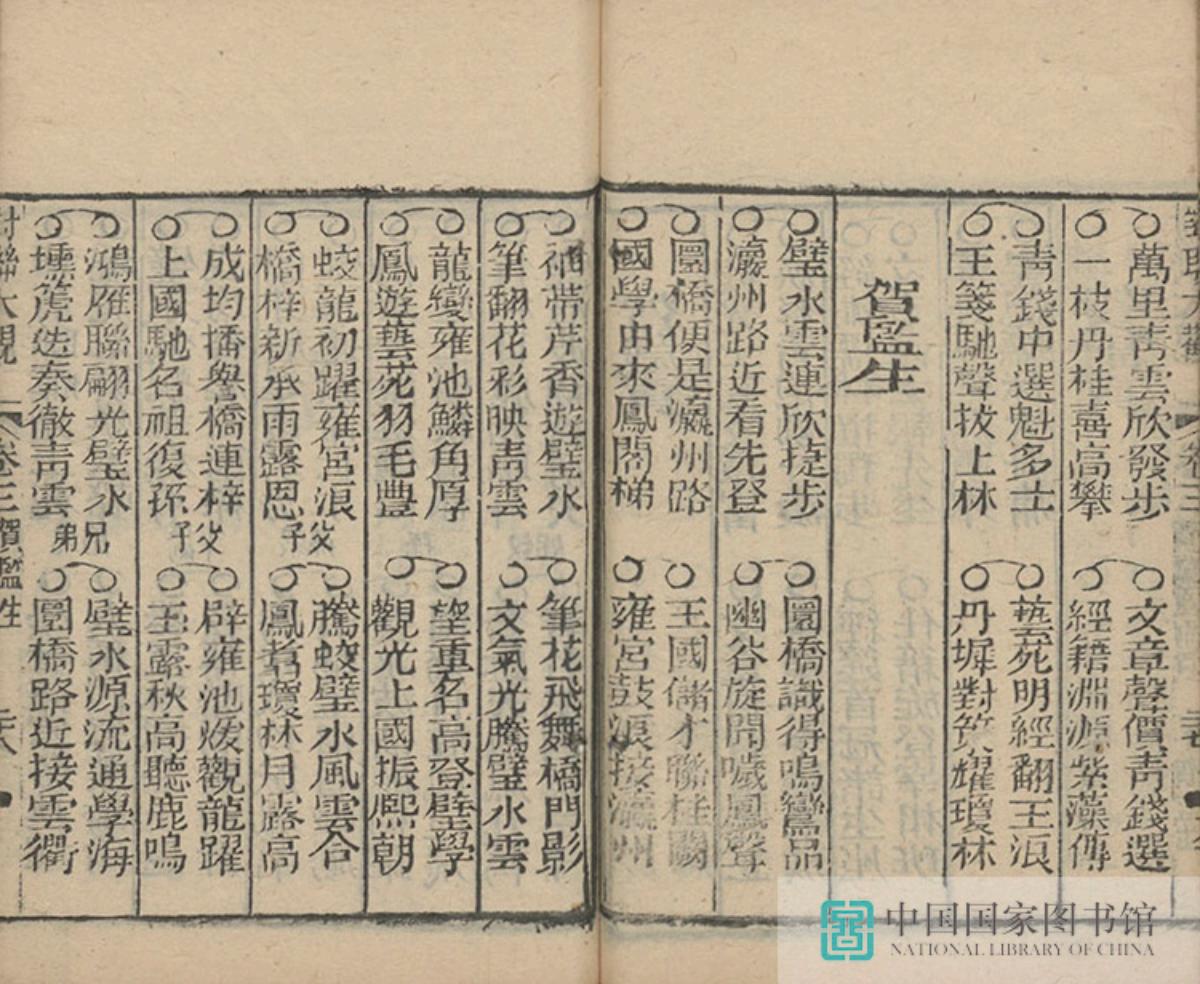 萬里靑雲欣發步
一枝丹桂喜高攀
文章聲價靑錢選
經籍淵源紫藻傳
靑錢中選魁多士
王箋馳聲拔上林
藝苑明經翻王浪
丹墀對筞耀瓊林
賀監生
璧水雲連欣捷步
瀛州路近看先登
圜橋識得鳴鸞品
幽谷旋聞噦鳳聲
圜橋便是瀛州路
國學由來鳳閣梯
王國儲才聯桂闕
雍宮鼓浪接瀛州
帶芹香遊璧水
筆翻花彩映靑雲
筆花飛舞橋門影
文氣光騰璧水雲
龍變雍池鱗角厚
鳳遊藝苑羽毛豐
望重名高登璧學
觀光上國振熙朝
蛟龍初躍雍宮浪
橋梓新承雨露恩
父子
騰蛟璧水風雲合
鳳翥瓊林月露高
成均播譽橋連梓
上國馳名祖復孫
父子
辟雍池煖觀龍躍
玉露秋高聽鹿鳴
鴻雁聯翩光璧水
壎篪迭奏徹靑雲
兄弟
璧水源流通學海
圜橋路近接雲衢
對聯大觀
卷三
賀監生
中国国家图书馆
NATIONAL LIBRARY OF CHINA